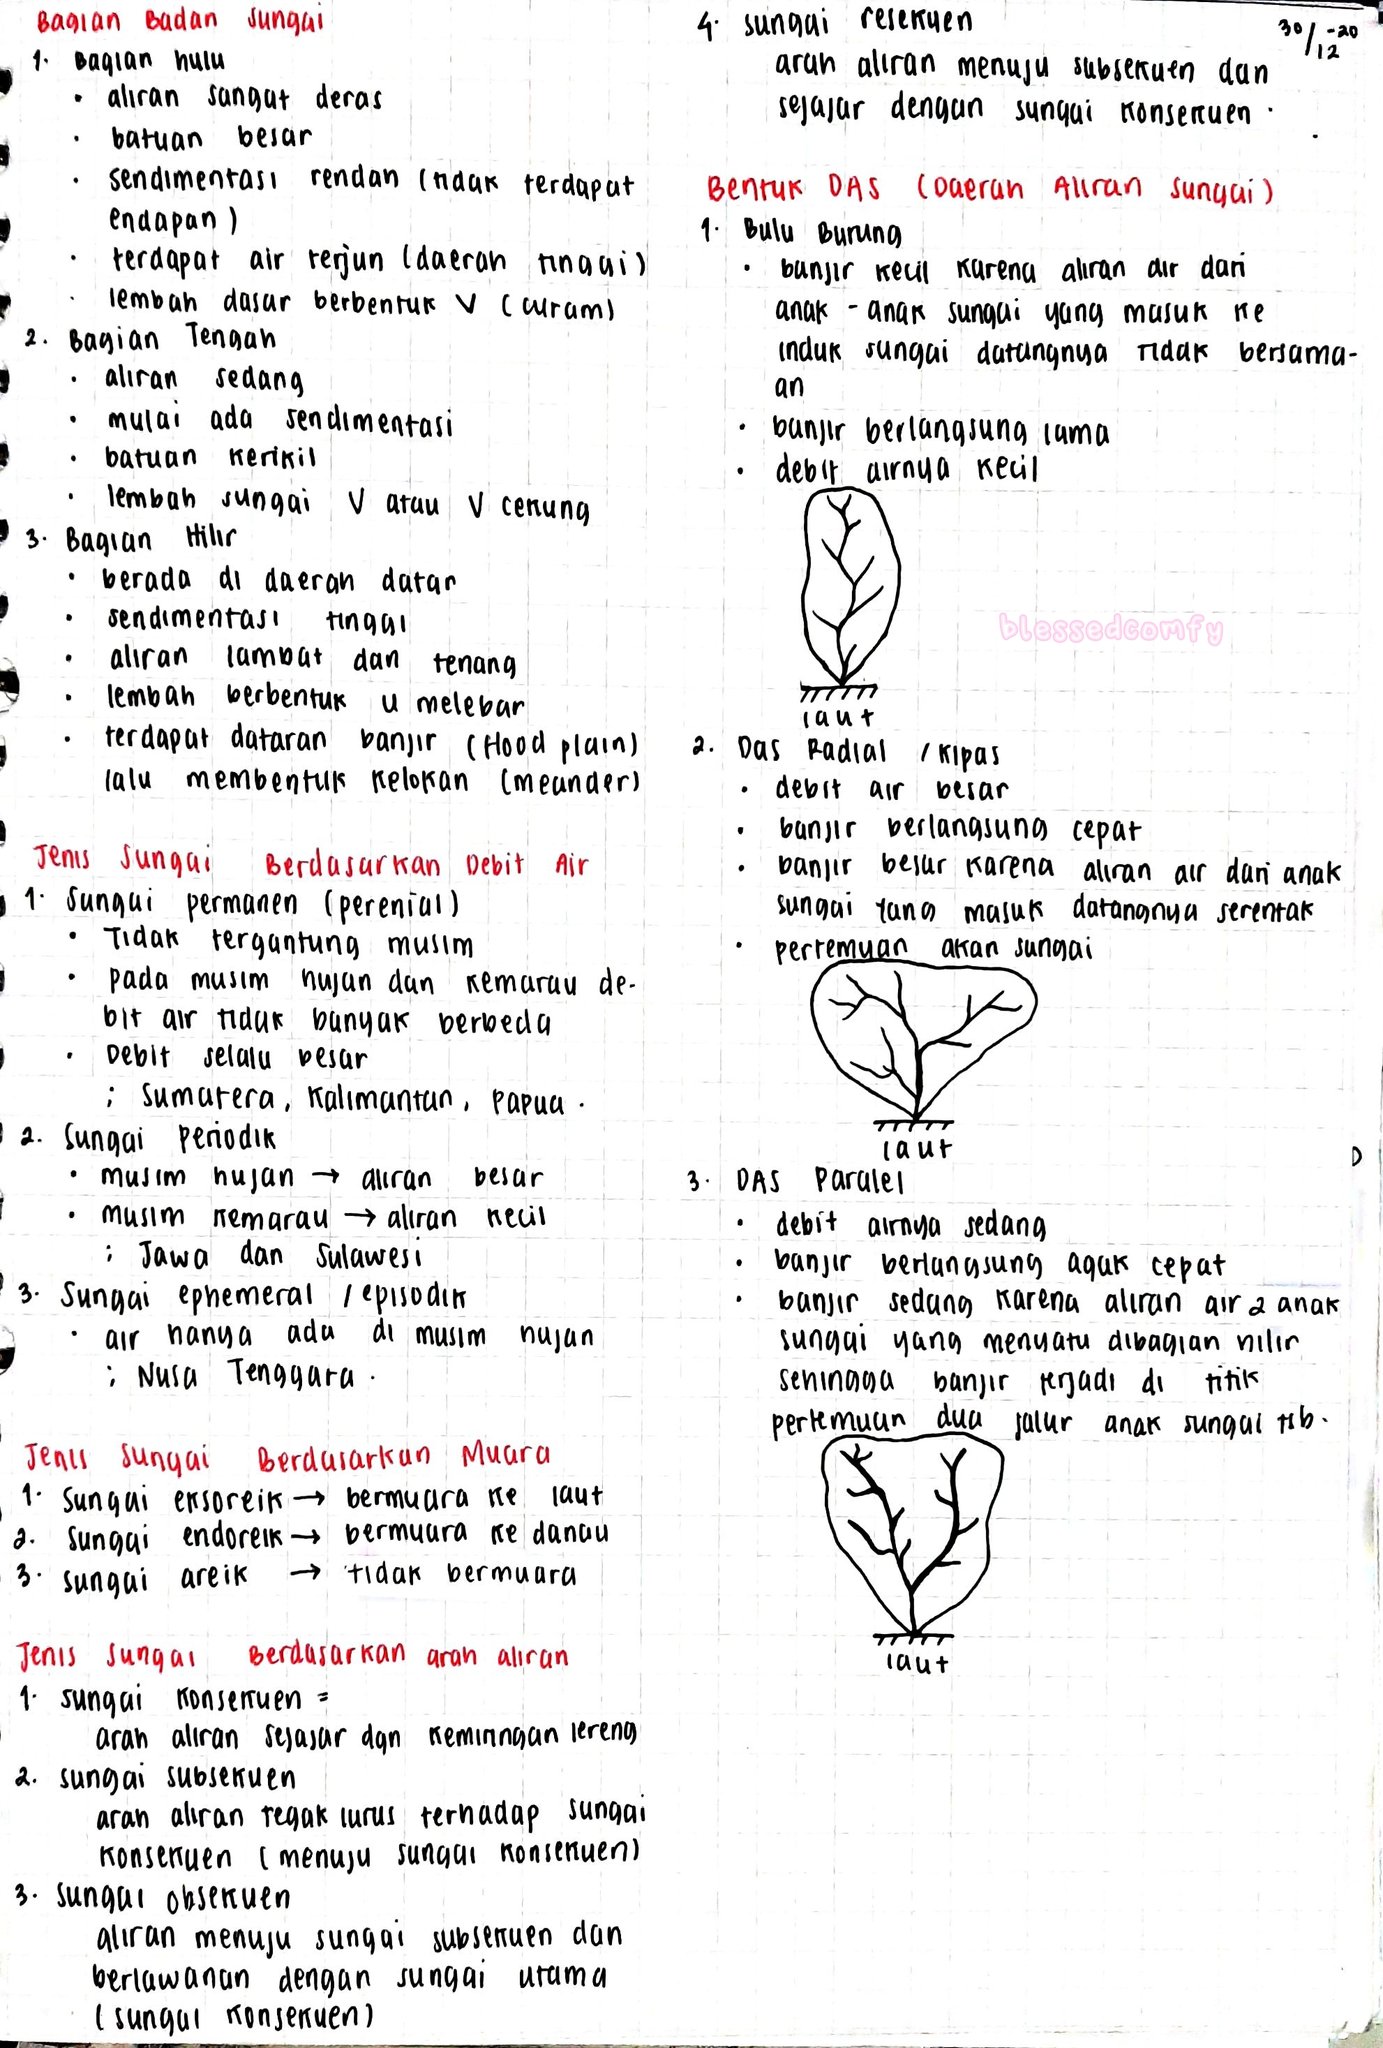 Bagian Badan Sungai
1. Bagian hulu
• aliran sangat deras
• batuan besar
• sendimentasi rendah (tidak terdapat
endapan)
• terdapat air terjun (daerah tinggi)
• lembah dasar berbentuk V (curam)
2. Bagian Tengah
• aliran sedang
• mulai ada sendimentasi
• batuan kerikil
• lembah sungai V atau V cekung
3. Bagian Hilir
• berada di daerah datar
• sendimentasi tinggi
• aliran lambat dan tenang
• lembah berbentuk U melebar
• terdapat dataran banjir (flood plain)
lalu membentuk kelokan (meander)
Jenis Sungai Berdasarkan Debit Air
1. Sungai permanen (perenial)
• Tidak tergantung musim
• pada musim hujan dan kemarau de-
bit air tidak banyak berbeda
• Debit selalu besar
; Sumatera, Kalimantan, Papua.
2. Sungai Periodik
• musim hujan → aliran besar
• musim kemarau → aliran kecil
; Jawa dan Sulawesi
3. Sungai ephemeral / episodik
• air hanya ada di musim hujan
; Nusa Tenggara.
Jenis Sungai Berdasarkan Muara
1. Sungai eksoreik → bermuara ke laut
2. Sungai endoreik → bermuara ke danau
3. Sungai areik → tidak bermuara
Jenis Sungai Berdasarkan arah aliran
1. Sungai Konsekuen =
arah aliran sejajar dgn kemiringan lereng
2. Sungai subsekuen
arah aliran tegak lurus terhadap sungai
konsekuen (menuju sungai konsekuen)
3. Sungai obsekuen
aliran menuju sungai subsekuen dan
berlawanan dengan sungai utama
(sungai konsekuen)
30/12 -20
4. Sungai resekuen
arah aliran menuju subsekuen dan
sejajar dengan sungai konsekuen.
Bentuk DAS (Daerah Aliran Sungai)
1. Bulu Burung
• banjir kecil karena aliran air dari
anak - anak sungai yang masuk ke
induk sungai datangnya tidak bersama-
an
• banjir berlangsung lama
• debit airnya kecil
blessedcomfy
laut
2. Das Radial / Kipas
• debit air besar
• banjir berlangsung cepat
• banjir besar karena aliran air dari anak
sungai yang masuk datangnya serentak
• pertemuan akan sungai
laut
D
3. DAS Paralel
• debit airnya sedang
• banjir berlangsung agak cepat
• banjir sedang karena aliran air 2 anak
sungai yang menyatu dibagian hilir
sehingga banjir terjadi di titik
pertemuan dua jalur anak sungai tsb.
laut